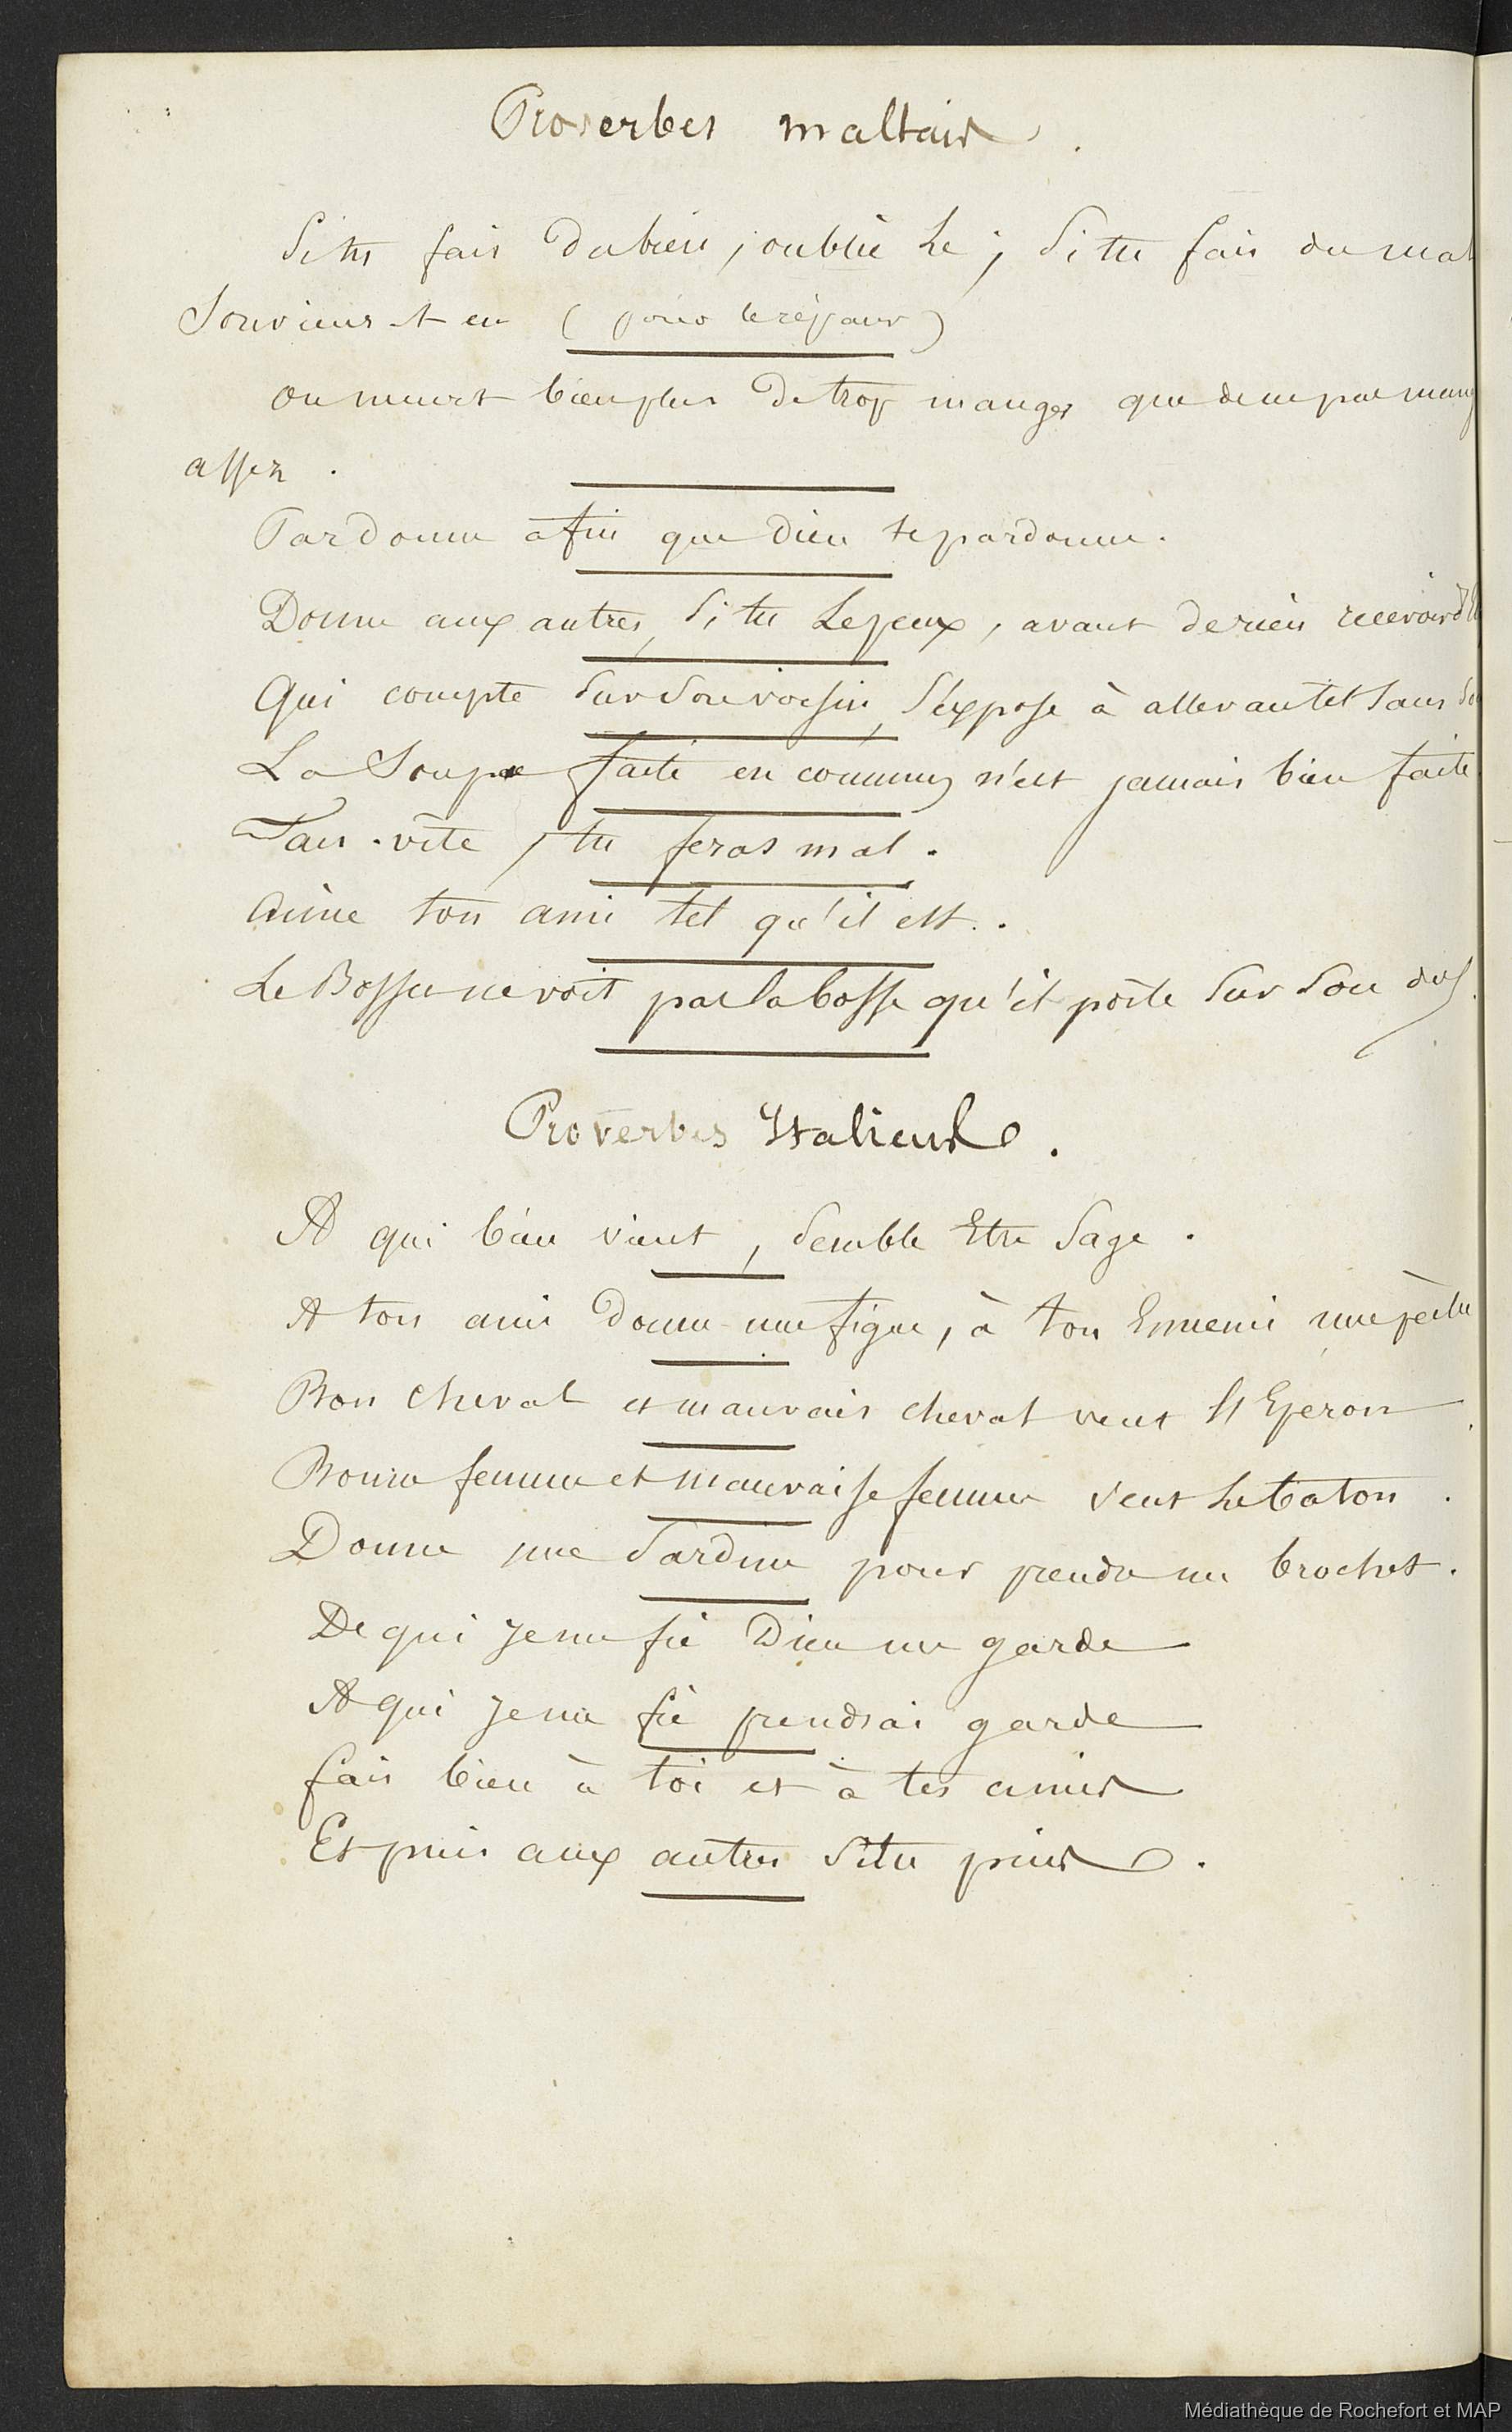 Proverbes maltais.
Si tu fais du bien, oublie Le; Si tu fais du mal
Souviens-t-en (pour le réparer)
On meurt bien plus De trop manger que de ne pas mang
assez.
Pardonne afin que Dieu te pardonne.
Donne aux autres, Si tu Le peux, avant de rien recevoir
Qui compte Sur Son voisin, S'expose à aller au lit Sans
La Soupe faite en commun n'est jamais bien faite
Fais-vite, tu feras mal.
Aime ton ami tel qu'il est.
Le Bossu ne voit pas la bosse qu'il porte Sur Son dos.
Proverbes Italiens.
A qui bien vient, Semble Etre Sage.
A ton ami Donne une figue, à ton Ennemi une pêche
Bon cheval et mauvais cheval veut l'Eperon.
Bonne femme et mauvaise femme veut Le baton.
Donne une Sardine pour prendre un brochet.
De qui je me fie Dieu me garde
A qui je me fie prendrai garde
fais bien à toi et à tes amis
Et puis aux autres Si tu puis.
Médiathèque de Rochefort et MAP